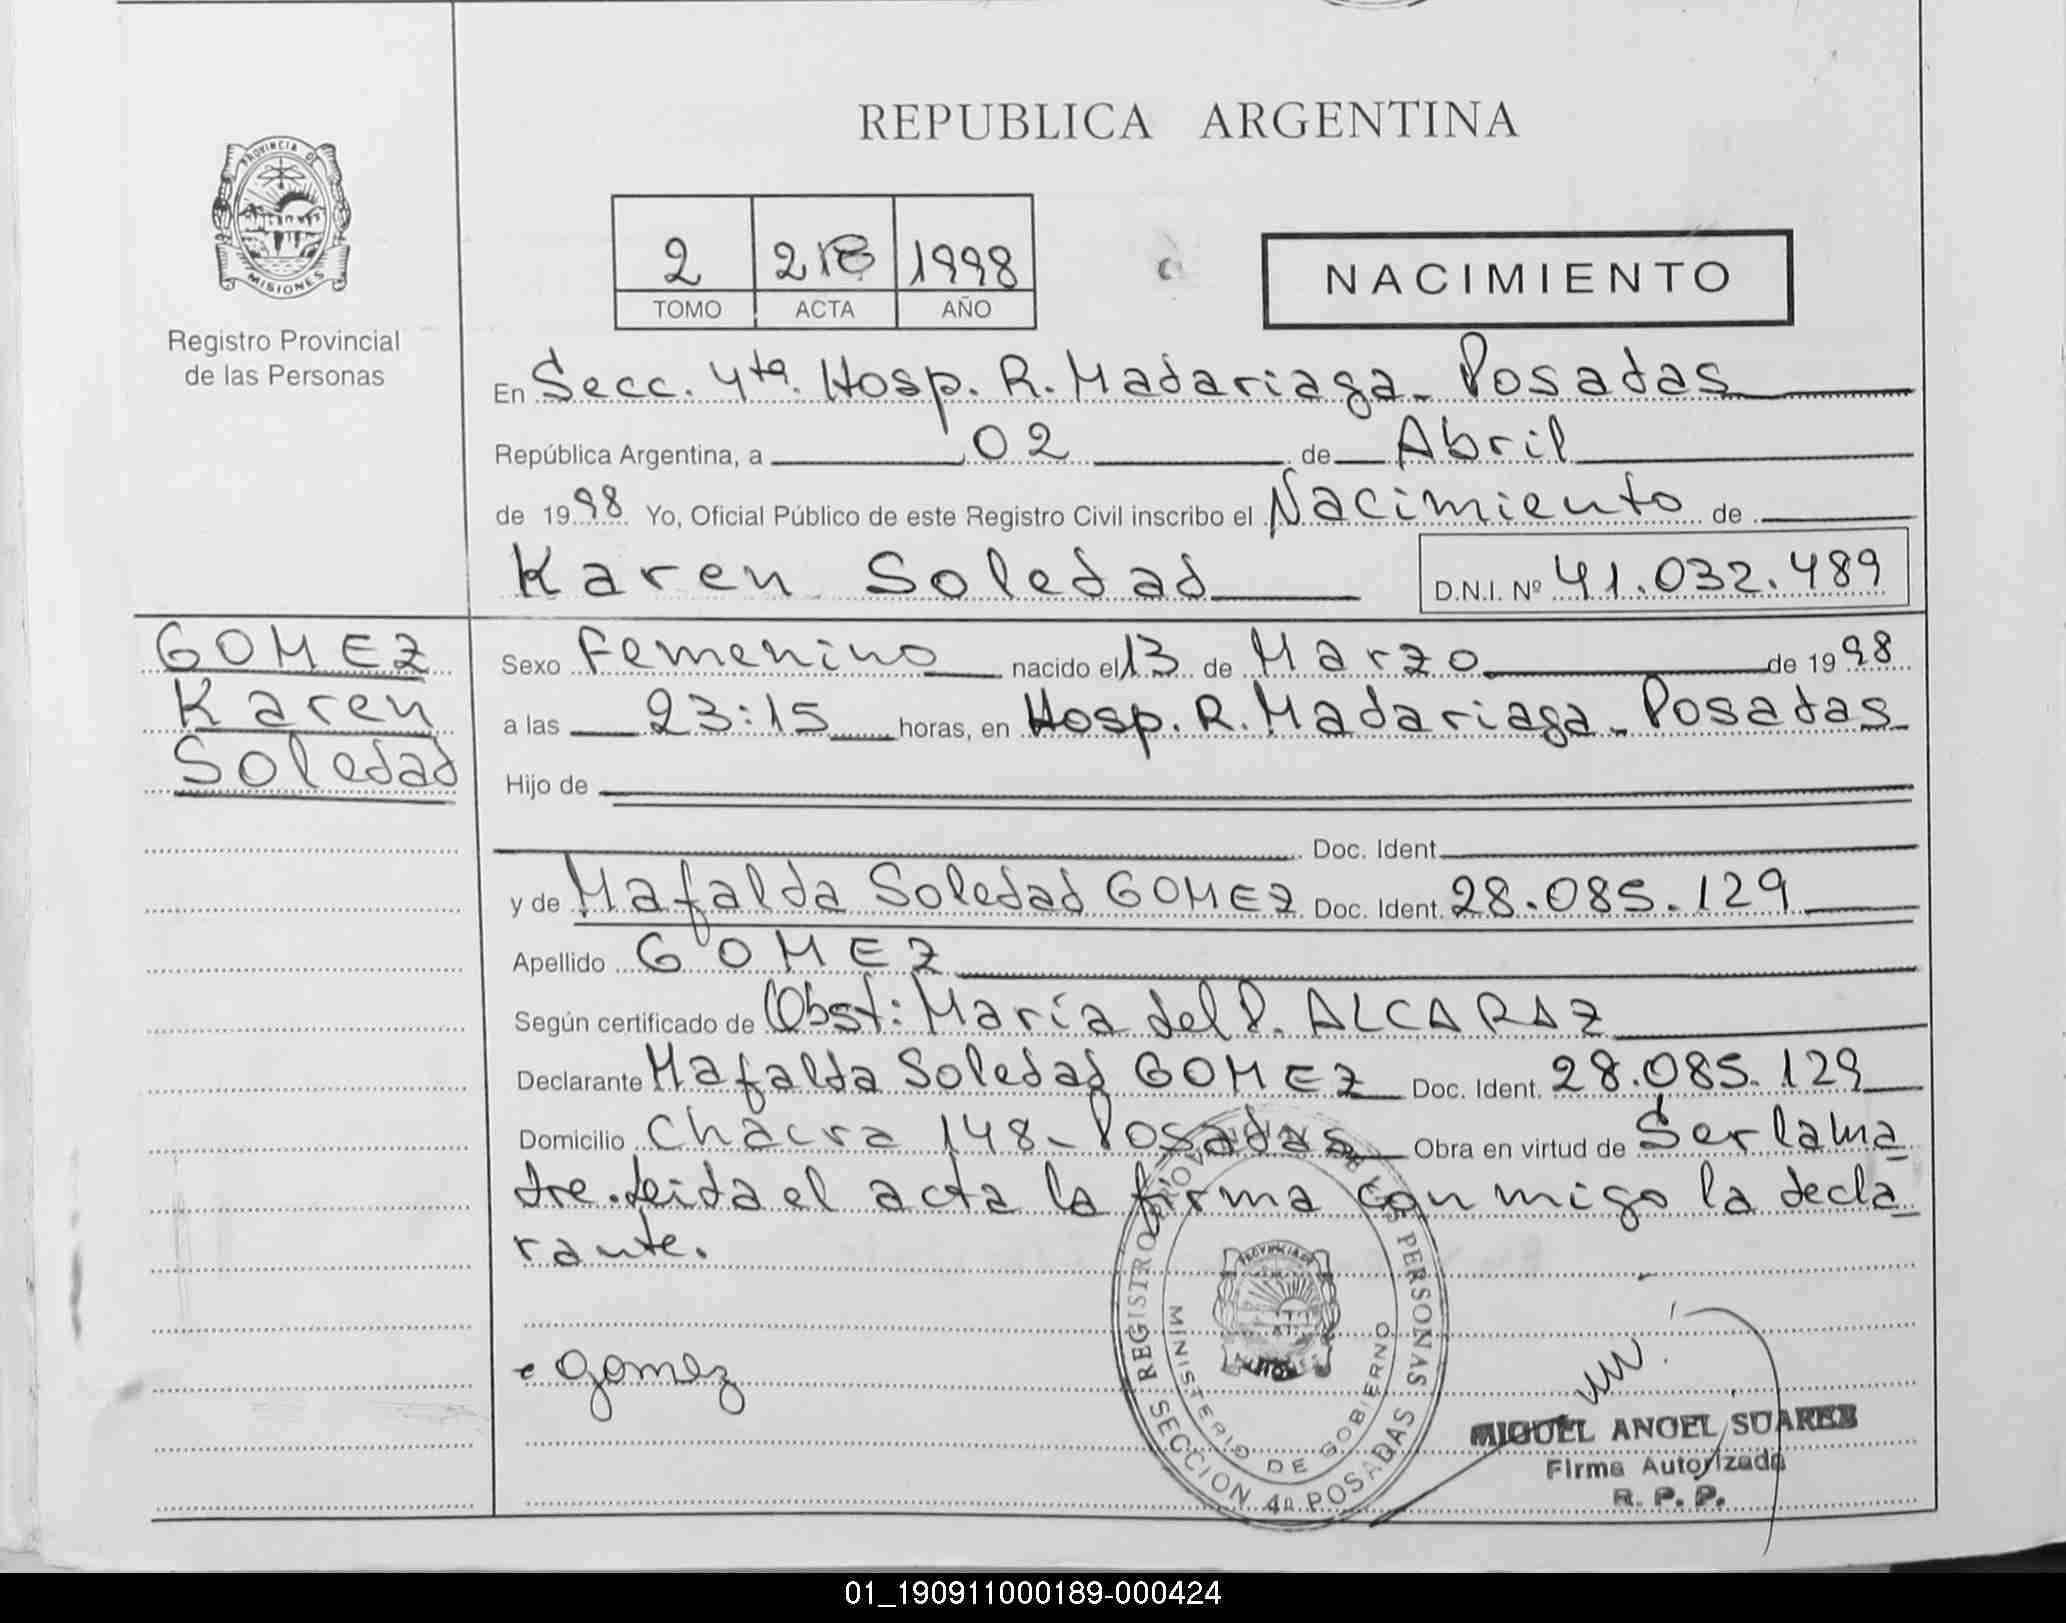 REPUBLICA ARGENTINA
PROVINCIA DE
MISIONES
Registro Provincial
de las Personas
2 218 1998
TOMO ACTA AÑO
NACIMIENTO
En Secc. 4ta. Hosp. R. Madariaga - Posadas
República Argentina, a 02 de Abril
de 1998 Yo, Oficial Público de este Registro Civil inscribo el Nacimiento de
Karen Soledad D.N.I. Nº 41.032.489
GOMEZ
Karen
Soledad
Sexo Femenino nacido el 13 de Marzo de 1998
a las 23:15 horas, en Hosp. R. Madariaga - Posadas
Hijo de
Doc. Ident.
y de Mafalda Soledad GOMEZ Doc. Ident. 28.085.129
Apellido GOMEZ
Según certificado de Obst: María del P. ALCARAZ
Declarante Mafalda Soledad GOMEZ Doc. Ident. 28.085.129
Domicilio Chacra 148 - Posadas Obra en virtud de Ser la ma
dre. Leida el acta la firma conmigo la decla
rante.
Gomez
REGISTRO PROVINCIAL DE LAS PERSONAS
SECCION 4a POSADAS
MINISTERIO DE GOBIERNO
PROVINCIA DE
MIGUEL ANGEL SUAREZ
Firma Autorizada
R. P. P.
01_190911000189-000424